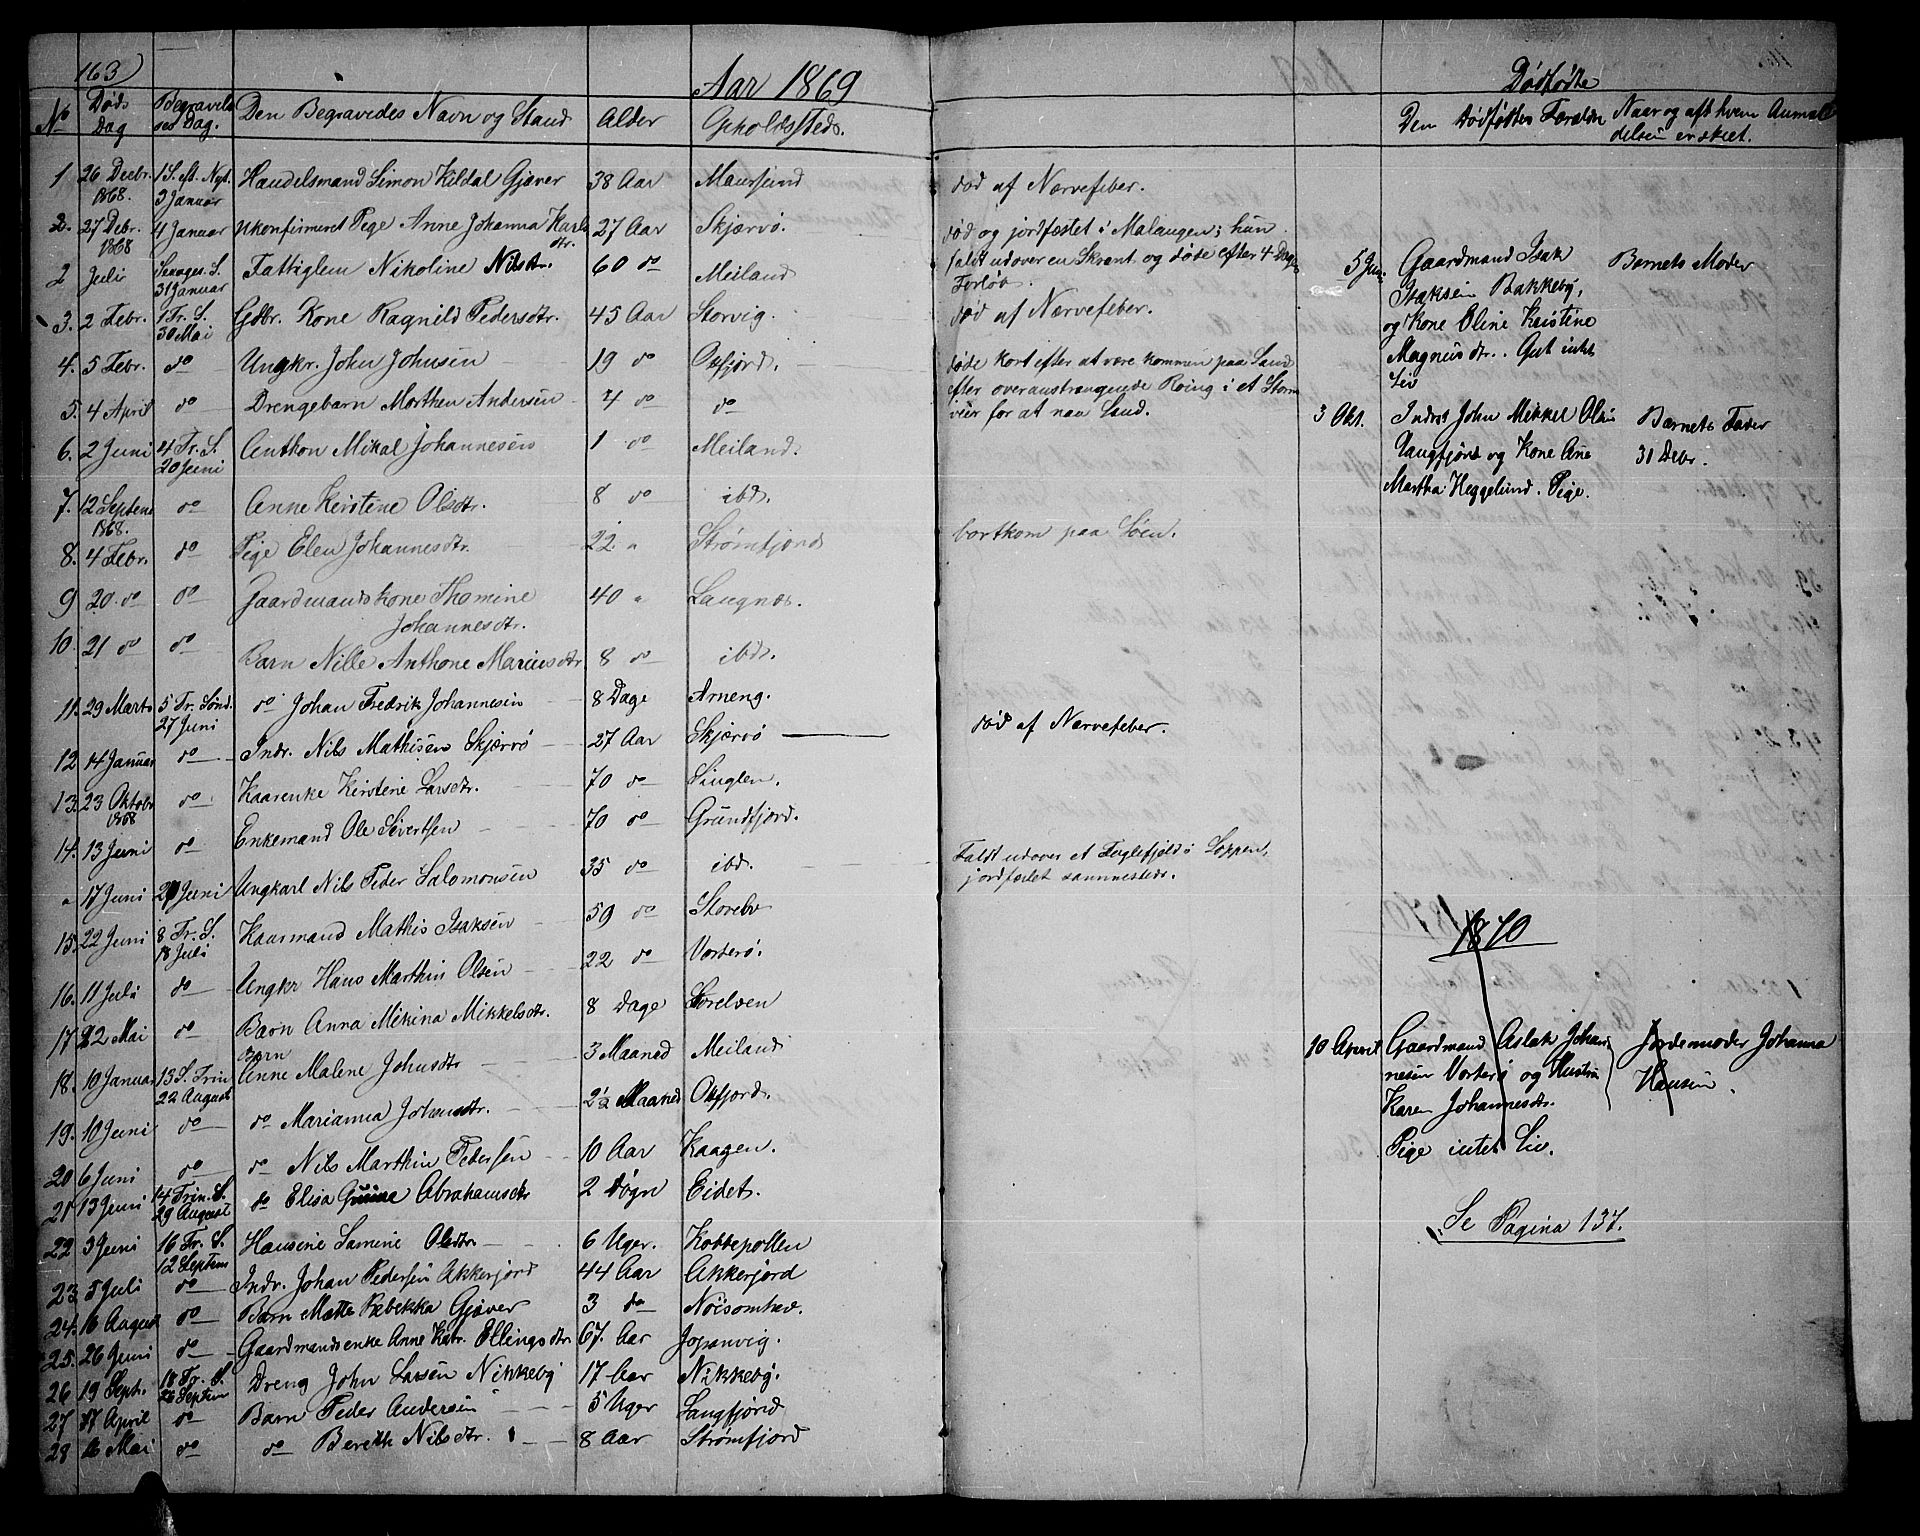 163)
Aar 1869
No Døds Dag Begravelses Dag. Den Begravedes Navn og Stand Alder Opholdssteds.
1 26 Decbr. 1868. 1 S. eft. Nyt. 3 Januar Handelsmand Simon Kildal Gjæver 38 Aar Maursund død af Nærvefeber.
2. 27 Debr. 1868 4 Januar ukonfirmeret Pige Anne Johanna Karls dtr. 27 Aar Skjærvø. død og jordfæstet i Malangen; hun
faldt udover en Skrent og døde efter 4 Dages
Forløb.
2 Juli 31 Januar Fattiglem Nikoline Nilsdtr. 60 do Meiland
3. 2 Febr. 1 Tr. S. 30 Mai Gdbr. Kone Ragnild Pedersdtr. 45 Aar Storvig. død af Nærvefeber.
4. 5 Febr. do Ungkr. John Johnsen 19 do Oxfjord. døde kort efter at være kommen paa Land
efter overanstrængende Roing i et Storm
veir for at naa Land.
5. 4 April do Drengebarn Morthen Andersen 4 do do
6. 2 Juni 4 Tr. S. 20 Juni Anthon Mikal Johannesen 1 do Meiland.
7. 12 Septem 1868. do Anne Kirstene Olsdtr. 8 do ibd.
8. 4 Febr. do Pige Elen Johannesdtr. 22. " Strømfjord bortkom paa Søen.
9 20. do do Gaardmandskone Thomine Johannesdtr. 40 " Langnæs.
10. 21 do do Barn Nille Anthone Mariusdtr. 8 do ibd.
11. 29 Marts 5 Tr. Sønd. 27 Juni do Johan Fredrik Johannesen 8 Dage Arneng.
12 14 Januar do Indr. Nils Mathisen Skjærvø 27 Aar Skjærvø død af Nærvefeber.
13. 23 Oktobr 1868 do Kaarenke Kirstene Larsdtr. 70 do Singlen.
14. 13 Juni do Enkemand Ole Sivertsen 70 do Grundfjord.
" 17 Juni 21 Juni Ungkarl Nils Peder Salomonsen 35 do ibd. Faldt udover et Fuglefjeld i Loppen,
jordfæstet sammesteds.
15. 22 Juni 8 Tr. S. 18 Juli Kaarmand Mathis Isaksen 59 do Storebv
16. 11 Juli do Ungkr Hans Marthin Olsen 22 do Vorterø.
17. 22 Mai do Barn Anna Mikina Mikkelsdtr. 8 Dage Sorelven
18. 10 Januar 13 S. Trin 22 August Barn Anne Malene Johnsdtr 3 Maaned Meiland
19. 10 Juni do do Marianna Johnsdtr. 2½ Maaned Oxfjord.
20 6 Juni do do Nils Marthin Pedersen 10 Aar Kaagen.
21 13 Juni 14 Trin. S. 29 August do Elisa Abrahamsdtr 2 Døgn Eidet.
22 3 Juni 16 Tr. S. 12 Septem Hansine Samine Olsdtr. 6 Uger. Kobbepollen
23. 5 Juli do Indr. Johan Pedersen Akkerjord 44 Aar Akkerjord
24. 16 August do Barn Mette Rebekka Gjæver 3 do Nøisomhed.
25. 26 Juni do Gaardmandsenke Anne Katr. Ellingsdtr. 67. Aar Jopanvig.
26 19 Sept. 18 Tr. S. 26 Septem Dreng John Larsen Nikkeby 17 Aar Nikkeby.
27 17 April do Barn Peder Andersen 5 Uger Langfjord
28 16 Mai do do Bereth Nilsdtr. 8 Aar Strømfjord
Dødfødte
Den Dødfødtes Forældre Naar og aft hvem Anmel
delsen er skeet.
5 Jun. Gaardmand Isak
Isaksen Bakkeby,
og Kone Oline Kristine
Magnusdtr. Gut intet
Liv
Barnets Moder
3 Okt. Indrst John Mikkel Olsen
Langfjord og Kone Ane
Martha Heggelund. Pige.
Barnets Fader
31 Debr.
1870
10 April Gaardmand Aslak Johan
nesen Vorterø og Hustru
Karen Johannesdtr.
Pige intet Liv.
Jordemoder Johanna
Hansen.
Se Pagina 137.